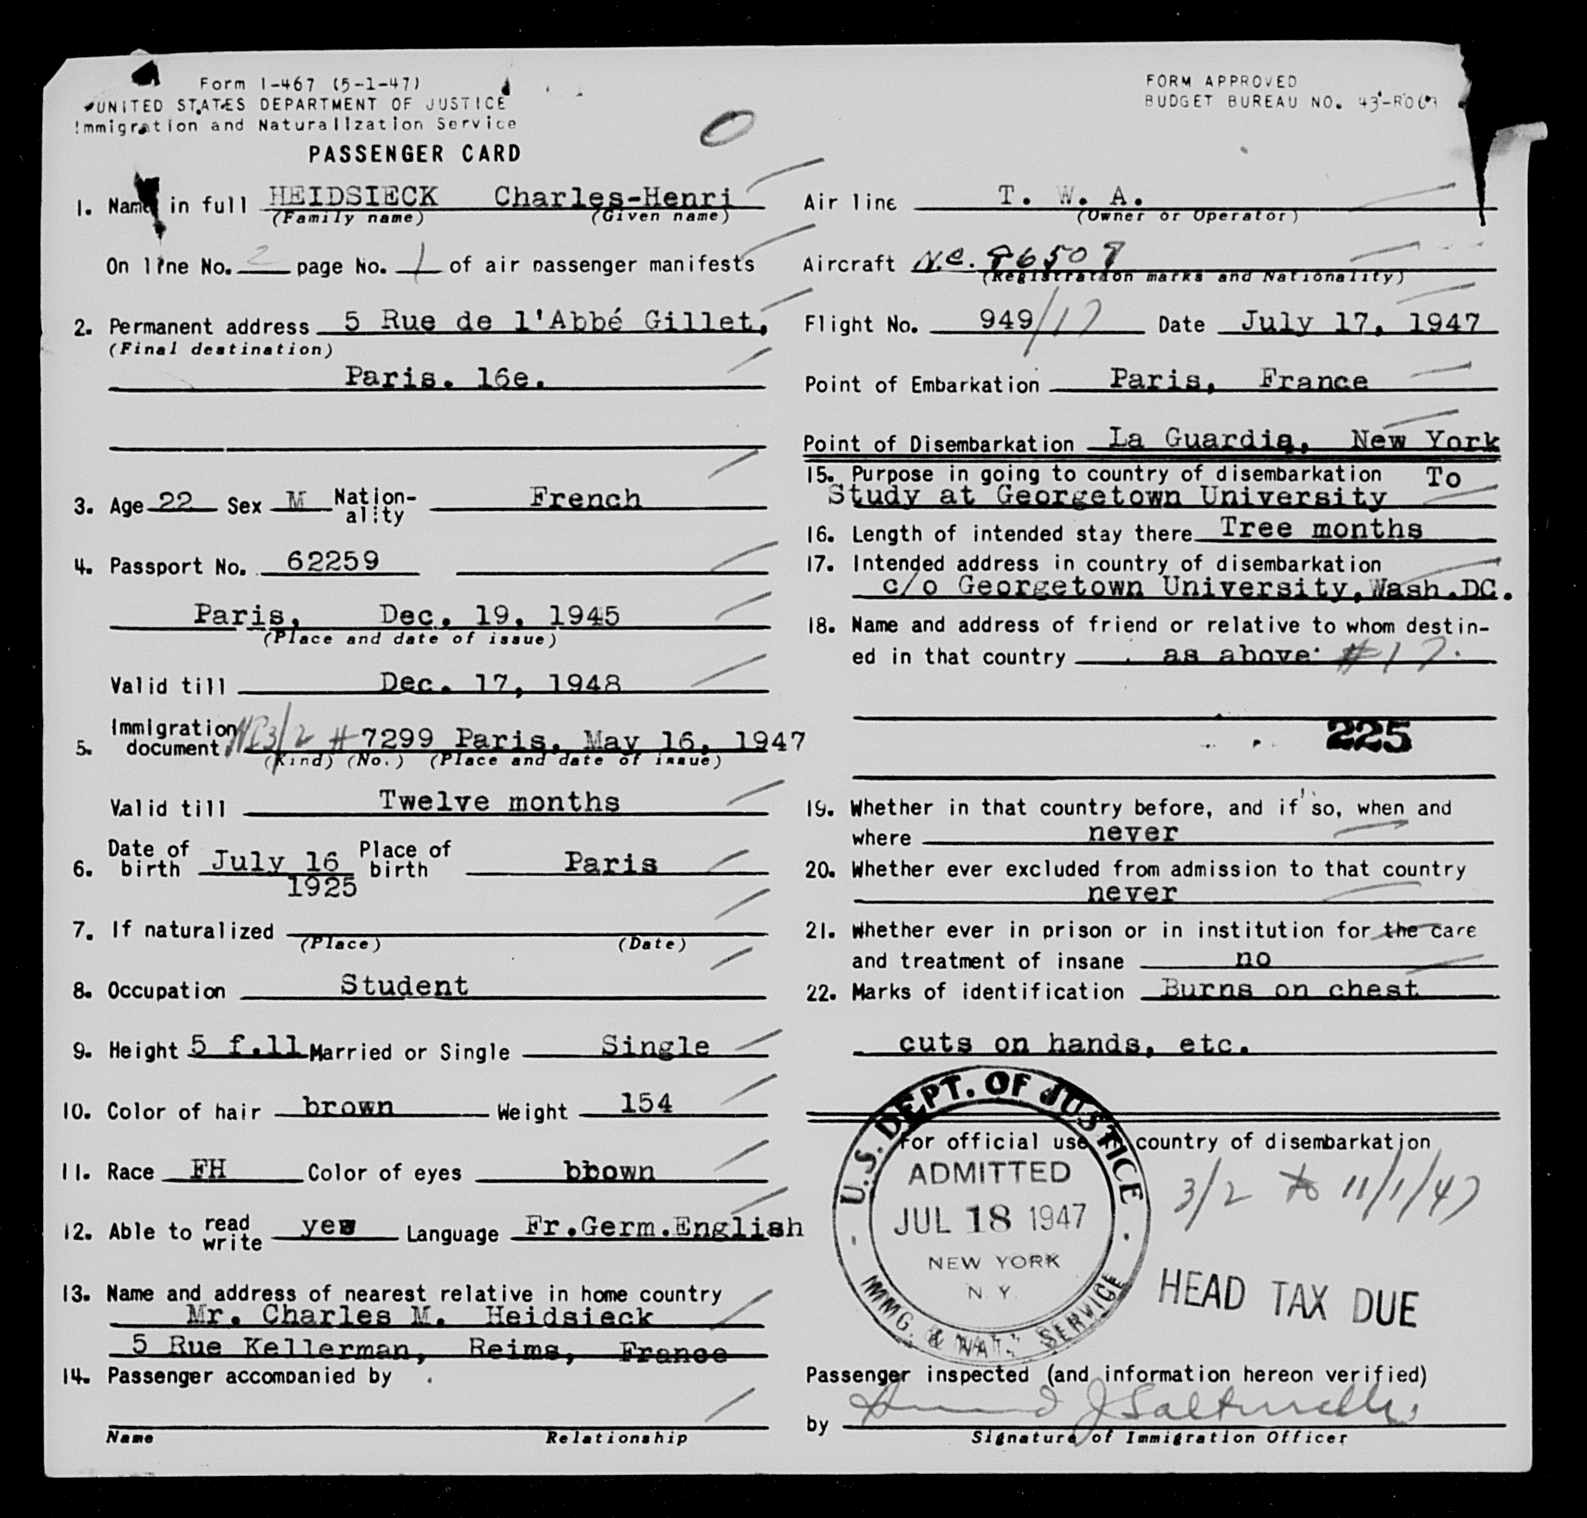 Form I-467 (5-1-47)
UNITED STATES DEPARTMENT OF JUSTICE
Immigration and Naturalization Service
PASSENGER CARD
FORM APPROVED
BUDGET BUREAU NO.
1. Name in full HEIDSIECK Charles-Henri
(Family name) (Given name)
On line No. 2 page No. 1 of air passenger manifests
2. Permanent address 5 Rue de l'Abbé Gillet,
(Final destination)
Paris. 16e.
3. Age 22 Sex M Nation-ality French
4. Passport No. 62259
Paris, Dec. 19, 1945
(Place and date of issue)
Valid till Dec. 17, 1948
5. Immigration document 3/2 # 7299 Paris, May 16, 1947
(Kind) (No.) (Place and date of issue)
Valid till Twelve months
6. Date of birth July 16 1925 Place of birth Paris
7. If naturalized
(Place) (Date)
8. Occupation Student
9. Height 5 f.11 Married or Single Single
10. Color of hair brown Weight 154
11. Race FH Color of eyes bbown
12. Able to read write yes Language Fr.Germ.English
13. Name and address of nearest relative in home country
Mr. Charles M. Heidsieck
5 Rue Kellerman, Reims, France
14. Passenger accompanied by
Name Relationship
Air line T. W. A.
(Owner or Operator)
Aircraft N.C. 86509
(Registration marks and Nationality)
Flight No. 949/17 Date July 17, 1947
Point of Embarkation Paris, France
Point of Disembarkation La Guardia, New York
15. Purpose in going to country of disembarkation To
Study at Georgetown University
16. Length of intended stay there Tree months
17. Intended address in country of disembarkation
c/o Georgetown University,Wash.DC.
18. Name and address of friend or relative to whom destin-
ed in that country as above #17.
225
19. Whether in that country before, and if so, when and
where never
20. Whether ever excluded from admission to that country
never
21. Whether ever in prison or in institution for the care
and treatment of insane no
22. Marks of identification Burns on chest
cuts on hands, etc.
For official use in country of disembarkation
U.S. DEPT. OF JUSTICE
ADMITTED
JUL 18 1947
NEW YORK
N.Y.
IMMG. & NAT. SERVICE
3/2 to 11/1/47
HEAD TAX DUE
Passenger inspected (and information hereon verified)
by
Signature of Immigration Officer